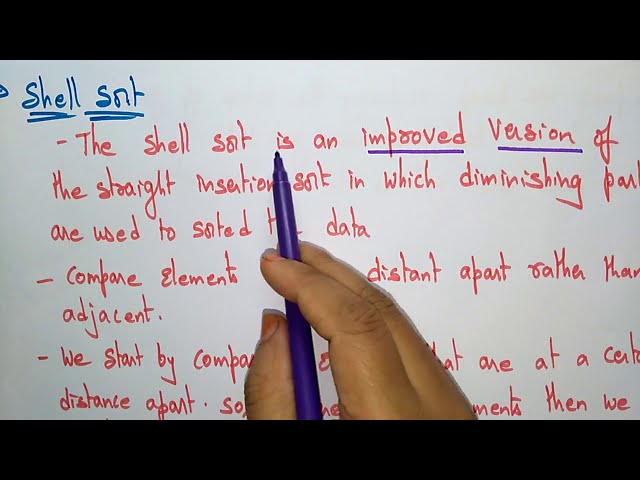 Shell Sort
- The shell sort is an improved version of
the straight insertion sort in which diminishing part
are used to sorted the data
- Compare Elements distant apart rather than
adjacent.
- We start by that are at a
distance apart. then we